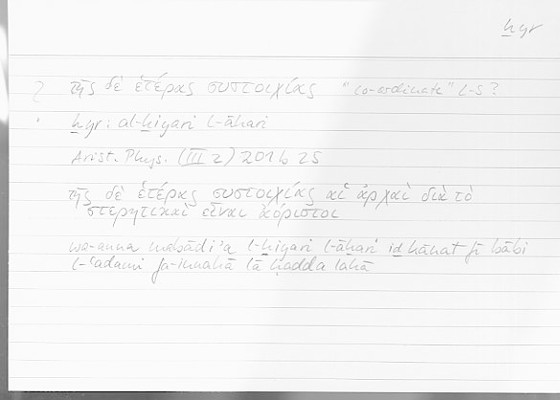 ḫyr
? τῆς δὲ ἑτέρας συστοιχίας "co-ordinate" L-S?
ḫyr: al-ḫiyari l-āḫari
Arist. Phys. (III 2) 201b25
τῆς δὲ ἑτέρας συστοιχίας αἱ ἀρχαὶ διὰ τὸ
στερητικαὶ εἶναι ἀόριστοι
wa-anna mabādi'a l-ḫiyari l-āḫari iḏ kānat fī bābi
l-ʿadami fa-innahā lā ḥadda lahā